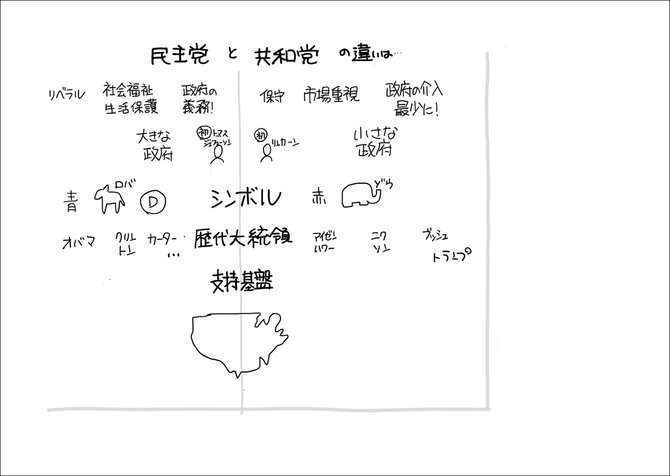 民主党 と 共和党 の違いは…
リベラル 社会福祉 生活保護 政府の義務! 保守 市場重視 政府の介入 最少に!
大きな政府 初 トマス ジェファーソン 初 リンカーン 小さな政府
青 ロバ D シンボル 赤 ぞう
オバマ クリントン カーター… 歴代大統領 アイゼンハワー ニクソン ブッシュ トランプ
支持基盤